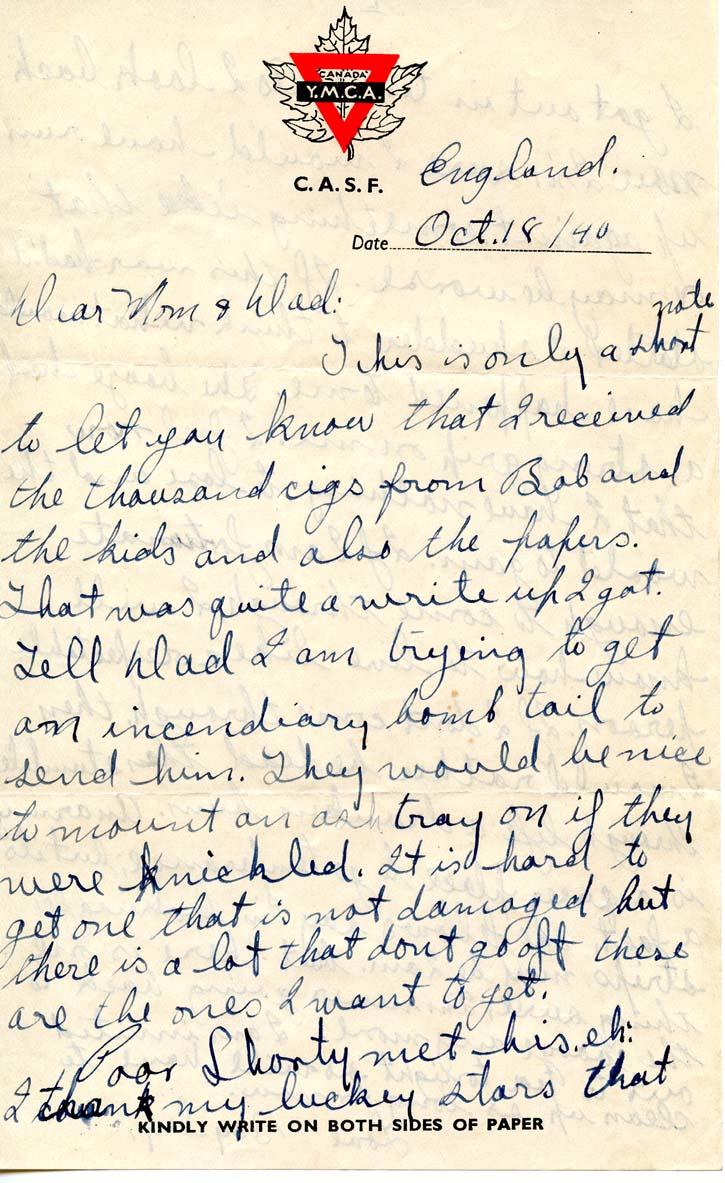 CANADA
Y.M.C.A.
C.A.S.F.
England.
Date Oct. 18/40
Dear Mom & Dad:
note
This is only a short
to let you know that I received
the thousand cigs from Bob and
the kids and also the papers.
That was quite a write up I got.
Tell Dad I am trying to get
an incendiary bomb tail to
send him. They would be nice
to mount an ash tray on if they
were knickled. It is hard to
get one that is not damaged but
there is a lot that dont go off these
are the ones I want to get.
Poor Shorty met his. eh:
I thank my luckey stars that
KINDLY WRITE ON BOTH SIDES OF PAPER